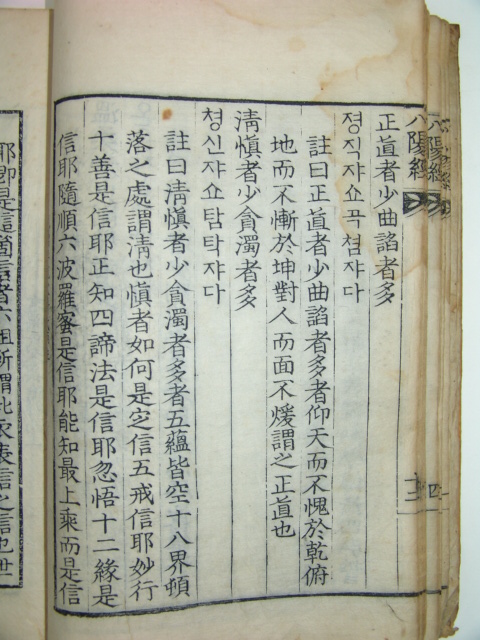 正直者少曲諂者多
졍직쟈쇼곡쳠쟈다
註曰正直者少曲諂者多者仰天而不愧於乾俯
地而不慚於坤對人而面不煖謂之正直也
淸愼者少貪濁者多
쳥신쟈쇼탐탁쟈다
註曰淸愼者少貪濁者多者五蘊皆空十八界頓
落之處謂淸也愼者如何是定信五戒信耶妙行
十善是信耶正知四諦法是信耶忽悟十二緣是
信耶隨順六波羅蜜是信耶能知最上乘而是信
耶卽是這箇信者六祖所謂
八陽經